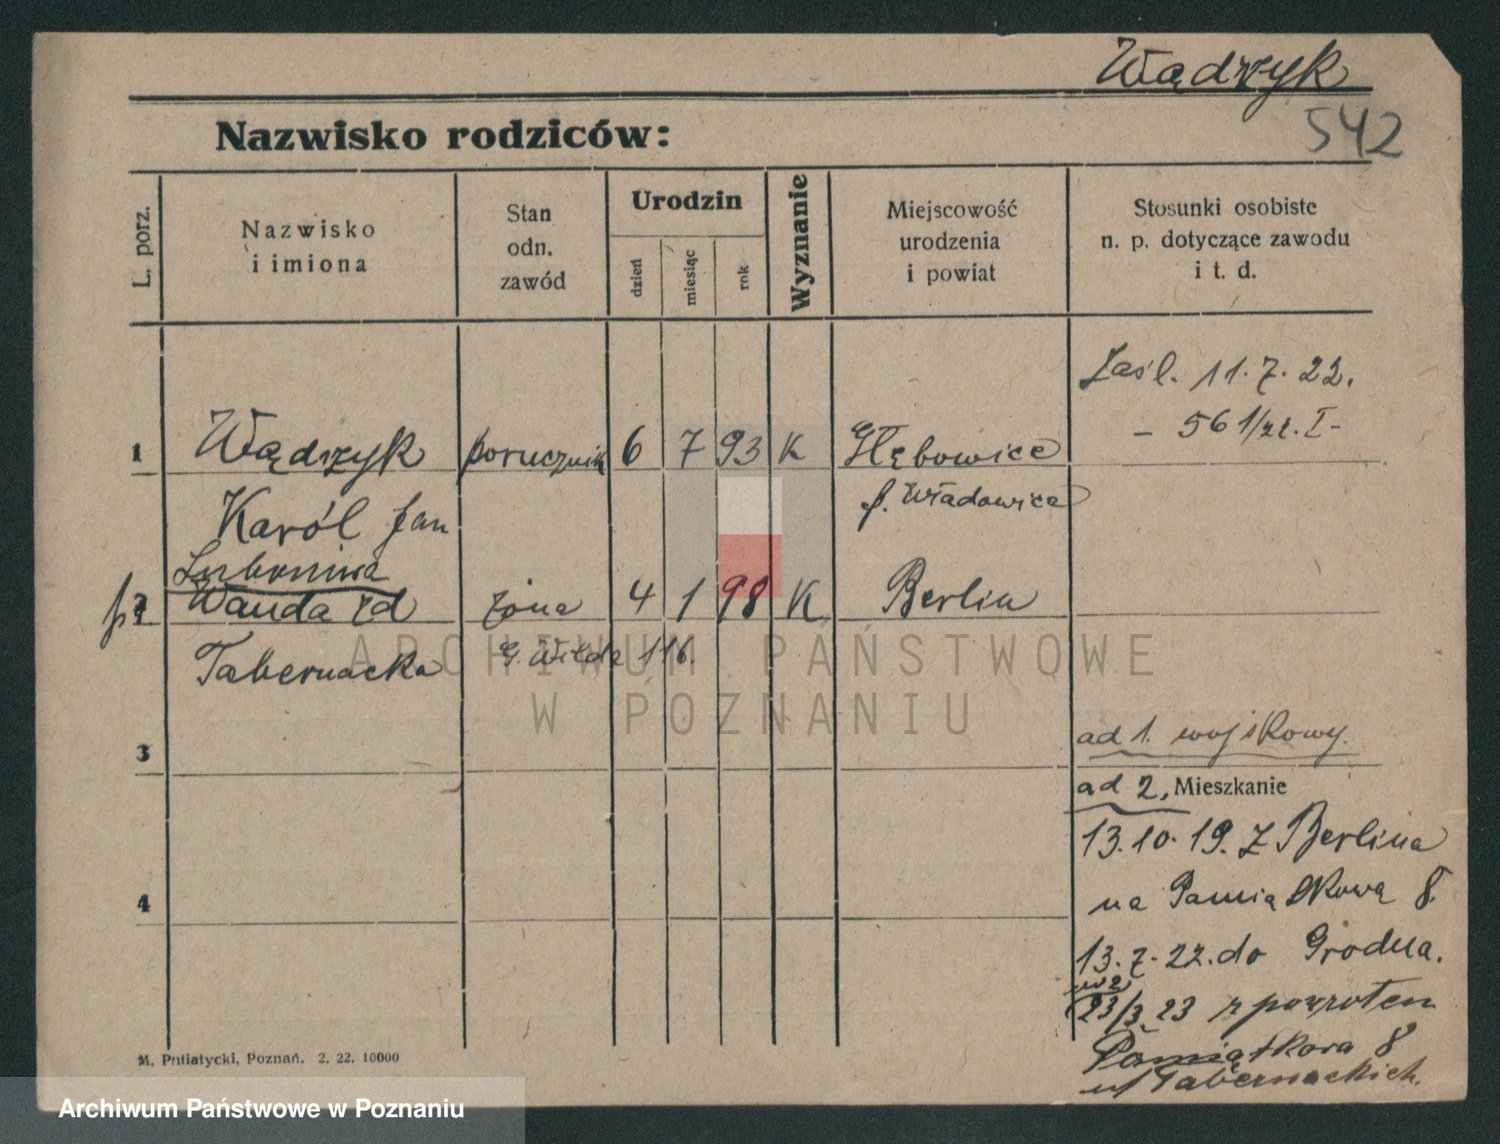 Wądrzyk
542
Nazwisko rodziców:
L. porz.
Nazwisko
i imiona
Stan
odn.
zawód
Urodzin
dzień
miesiąc
rok
Wyznanie
Miejscowość
urodzenia
i powiat
Stosunki osobiste
n. p. dotyczące zawodu
i t. d.
Zaśl. 11.7.22.
- 561/22. I-
1 Wądrzyk porucznik 6 7 93 K Głębowice
Karól Jan p. Władowice
Luboniwa
2 Wanda zd żona 4 1 98 K Berlin
Tabernacka G. Wilda 116.
3
ad 1. wojskowy.
ad 2, Mieszkanie
13.10.19. z Berlina
4
na Pamiątkową 8.
13.7.22. do Grodna.
23/3.23 z powrotem
Pamiątkowa 8
u/ Tabernackich.
M. Putiatycki, Poznań. 2. 22. 10000
ARCHIWUM PAŃSTWOWE
W POZNANIU
Archiwum Państwowe w Poznaniu